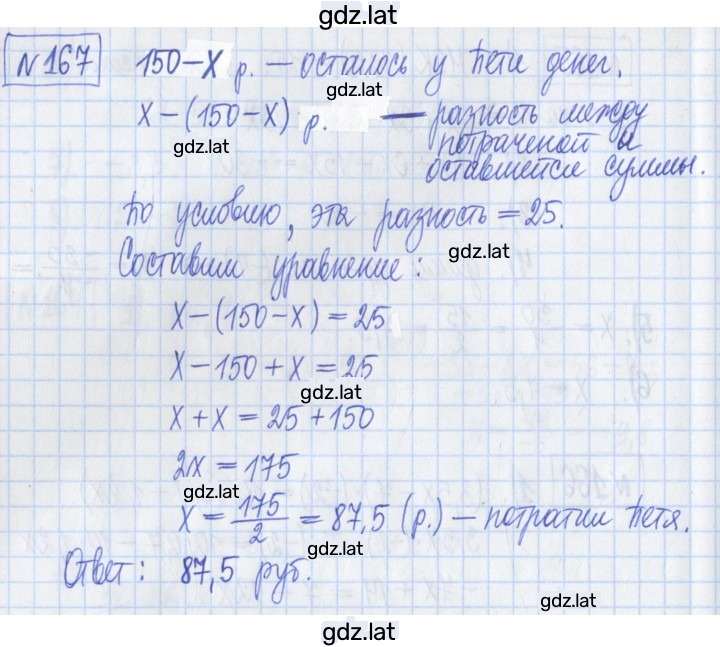 gdz.lat
№167 150-x р. — осталось у Пети денег.
gdz.lat
x-(150-x) р. — разность между
потраченой и
gdz.lat
оставшейся суммы.
По условию, эта разность = 25.
gdz.lat
Составим уравнение:
x-(150-x)=25
x-150+x=25
gdz.lat
x+x=25+150
2x=175
gdz.lat
x=175/2=87,5 (р.) — потратил Петя.
gdz.lat
Ответ: 87,5 руб.
gdz.lat
gdz.lat